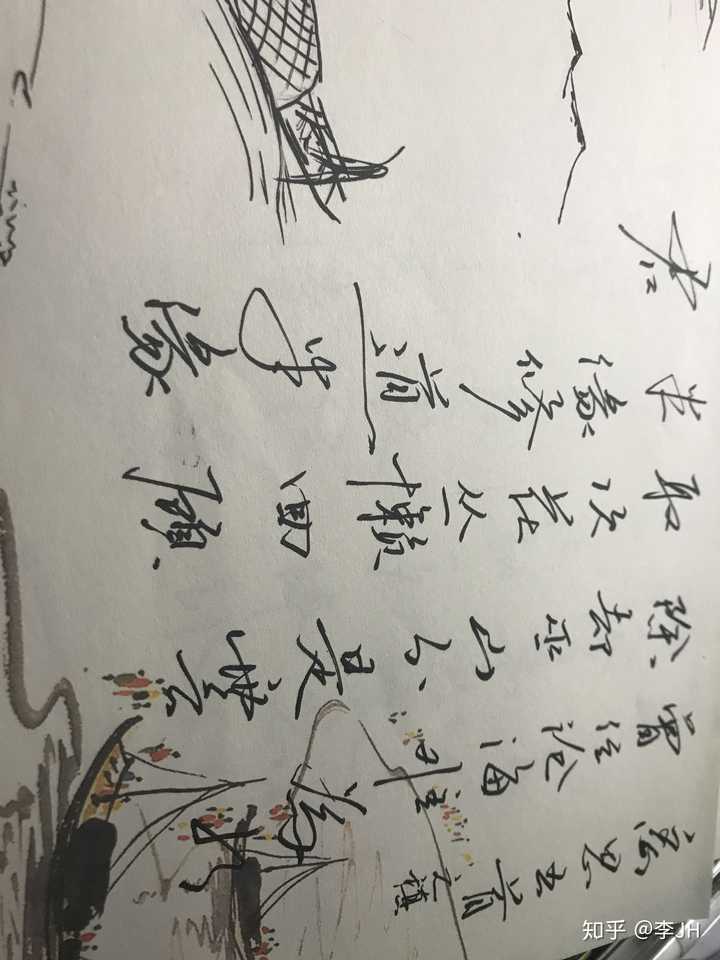 离思五首 元稹
曾经沧海难为水
除却巫山不是云
取次花丛懒回顾
半缘修道半缘
君
知乎 @李JH